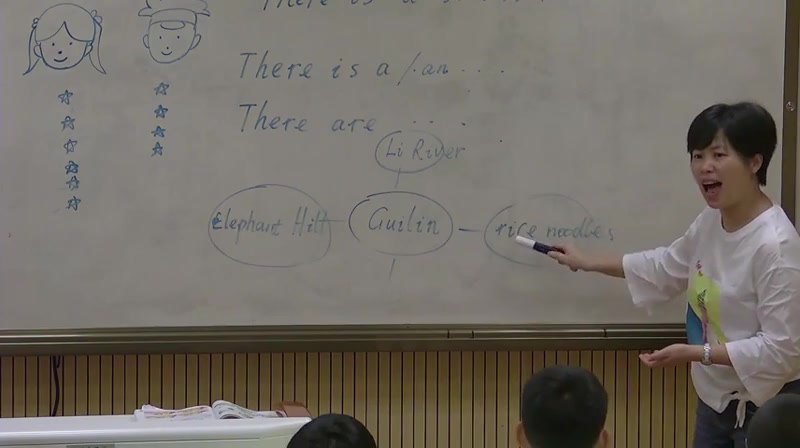 There is a
There is a /an ....
There are ....
Li River
Elephant Hill
Guilin
rice noodles